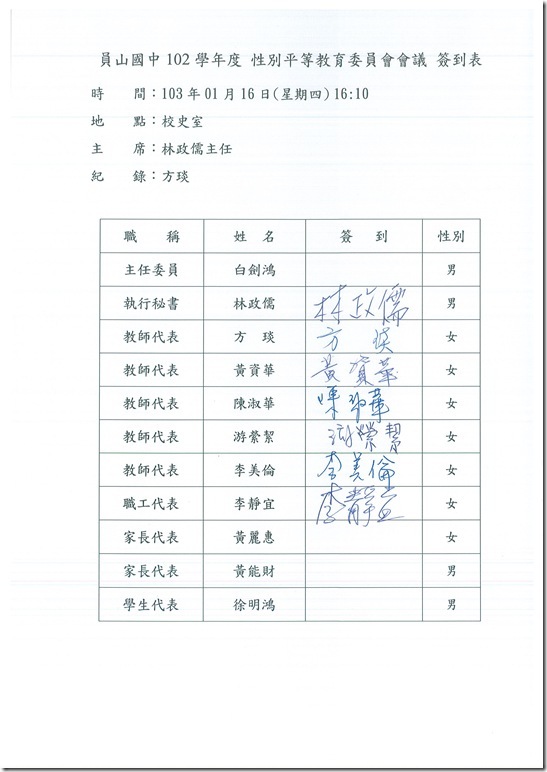 員山國中 102 學年度 性別平等教育委員會會議 簽到表
時 間：103 年 01 月 16 日(星期四) 16:10
地 點：校史室
主 席：林政儒主任
紀 錄：方琰
職 稱 姓 名 簽 到 性別
主任委員 白劍鴻 男
執行秘書 林政儒 林政儒 男
教師代表 方 琰 方 琰 女
教師代表 黃資華 黃資華 女
教師代表 陳淑華 陳淑華 女
教師代表 游縈絜 游縈絜 女
教師代表 李美倫 李美倫 女
職工代表 李靜宜 李靜宜 女
家長代表 黃麗惠 女
家長代表 黃能財 男
學生代表 徐明鴻 男